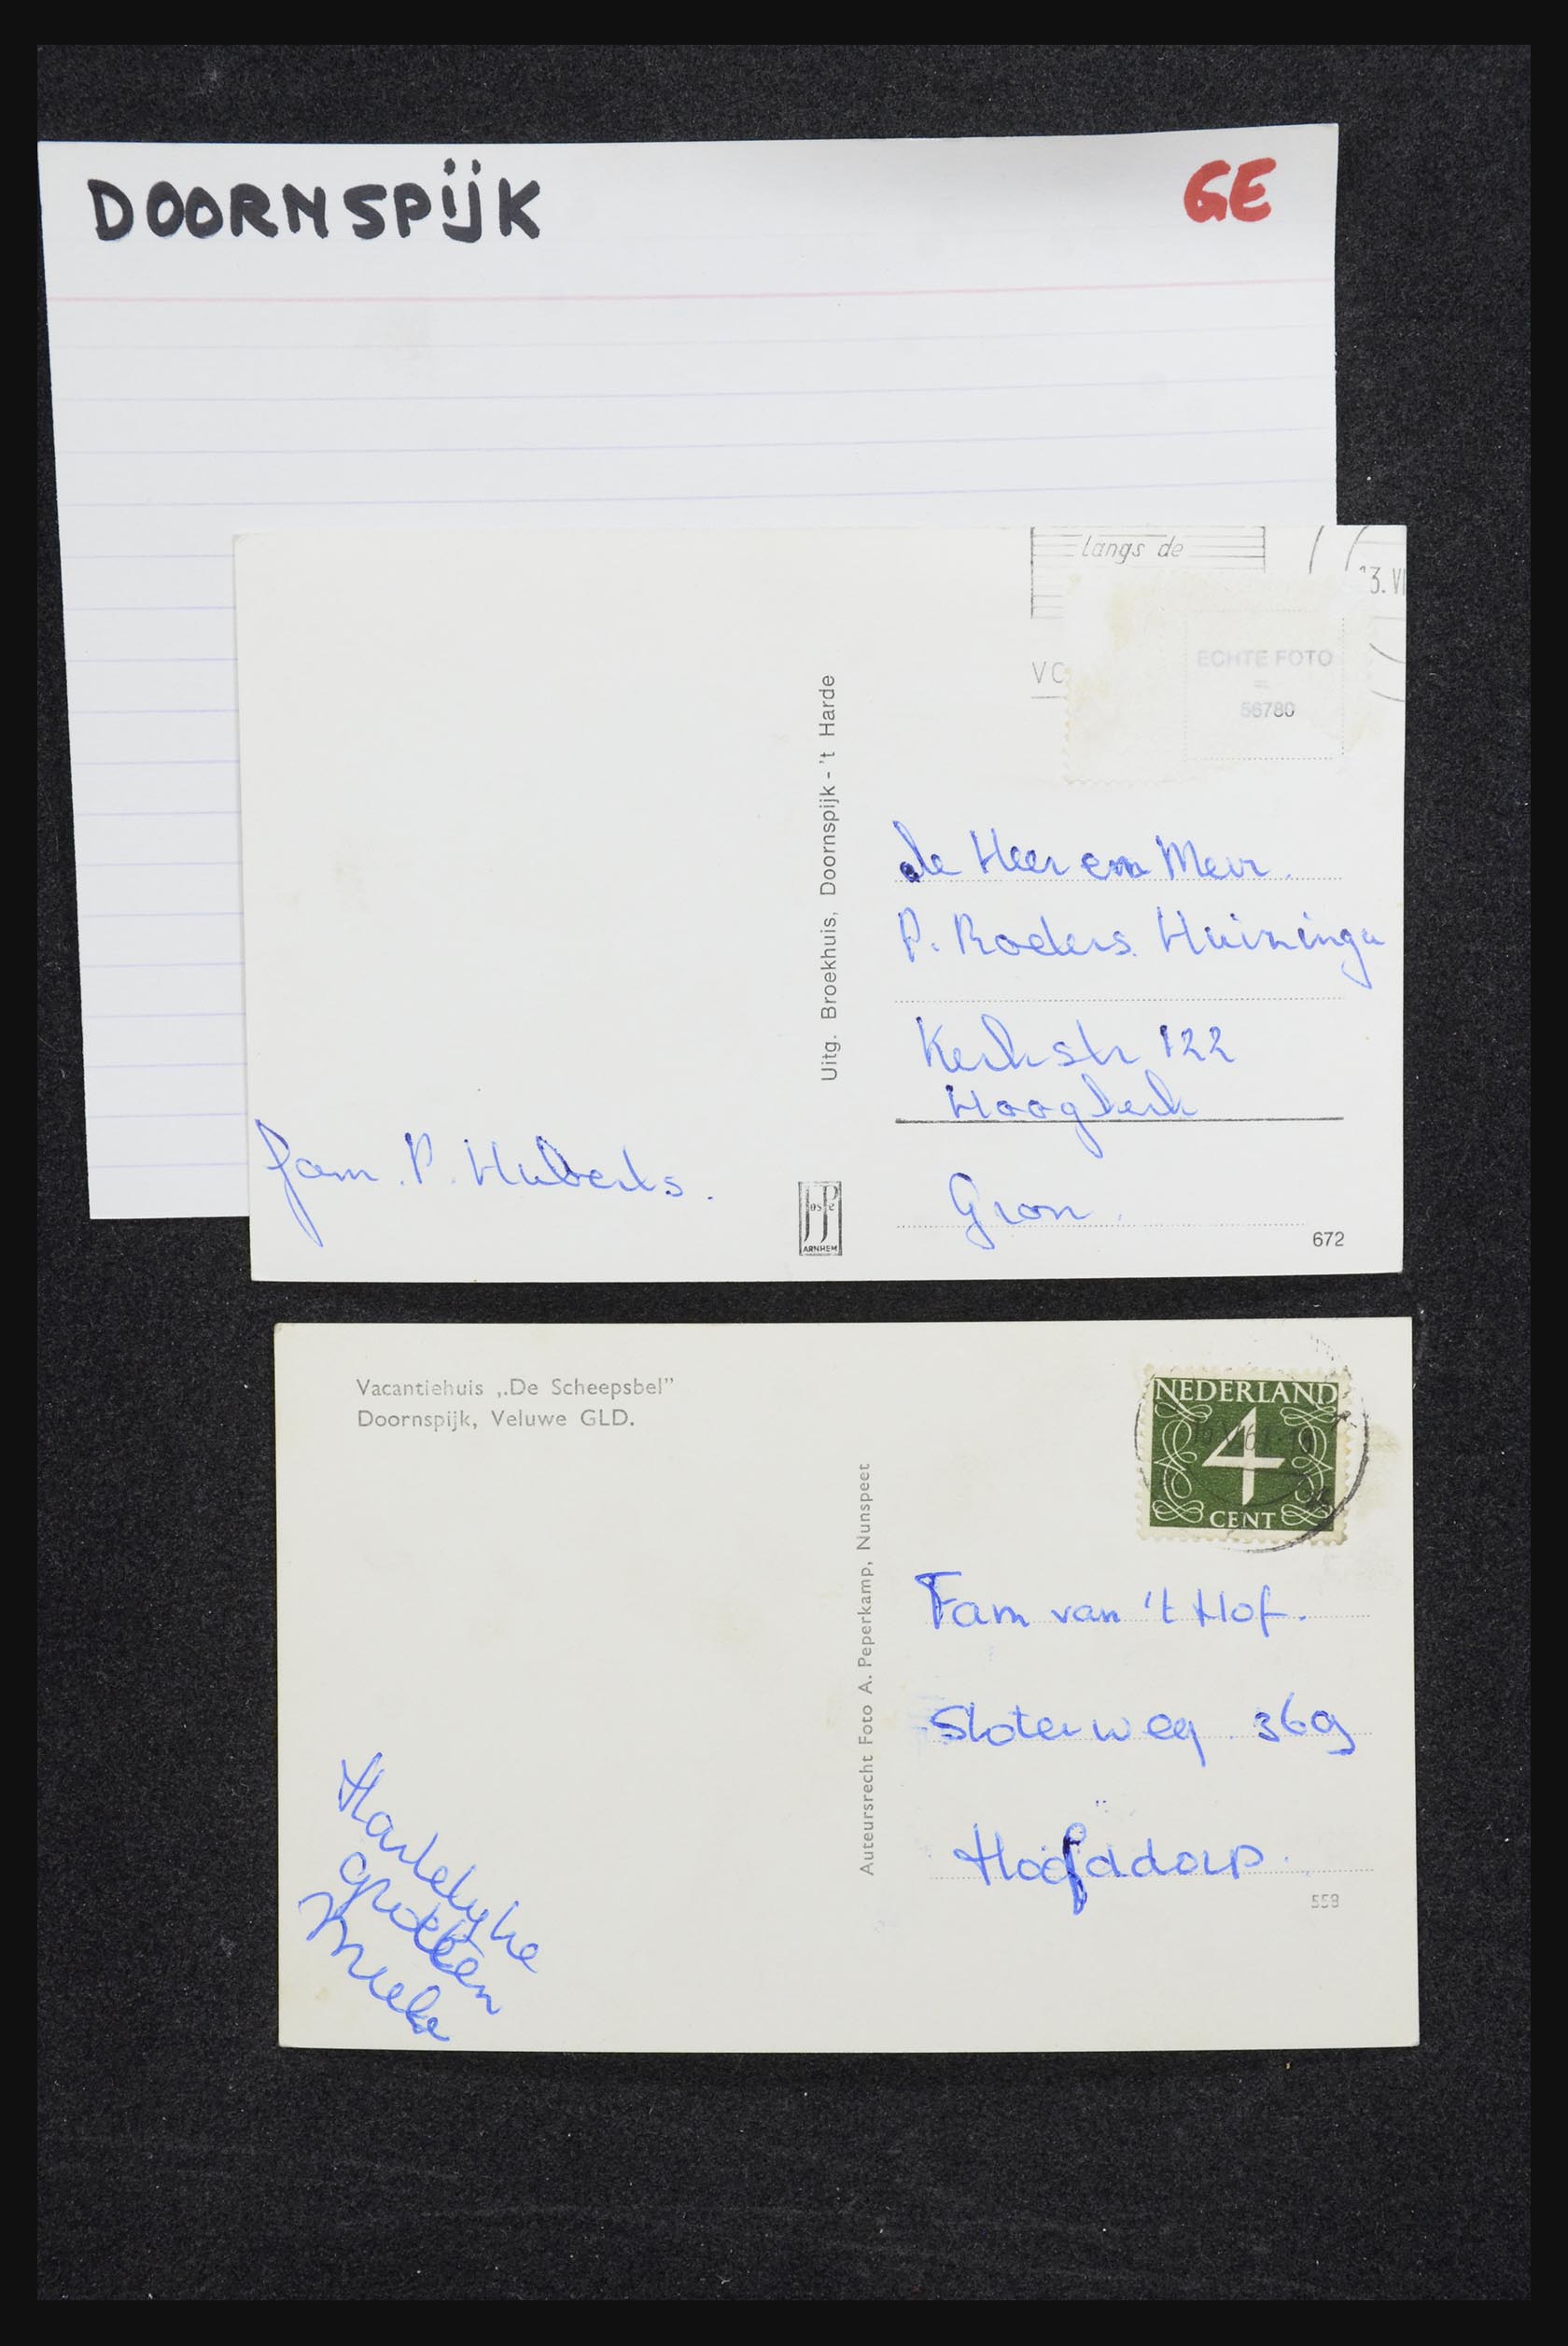 DOORNSPIJK
GE
langs de
13. VI
VO
ECHTE FOTO
=
56780
Uitg. Broekhuis, Doornspijk - 't Harde
de Heer en Mevr.
P. Roders Huizinga
Kerkstr 122
Hoogkerk
Gron.
fam. P. Huberts.
JosPé
ARNHEM
672
Vacantiehuis „De Scheepsbel"
Doornspijk, Veluwe GLD.
NEDERLAND
4
CENT
Auteursrecht Foto A. Peperkamp, Nunspeet
Fam van 't Hof.
Sloterweg 369
Hoofddorp.
558
Hartelijke
groeten
Mieke